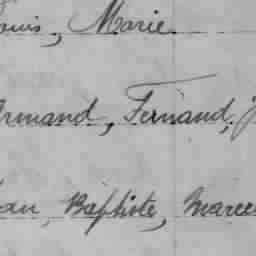 ouis, Marie.
Armand, Fernand, J
ean, Baptiste, Marce